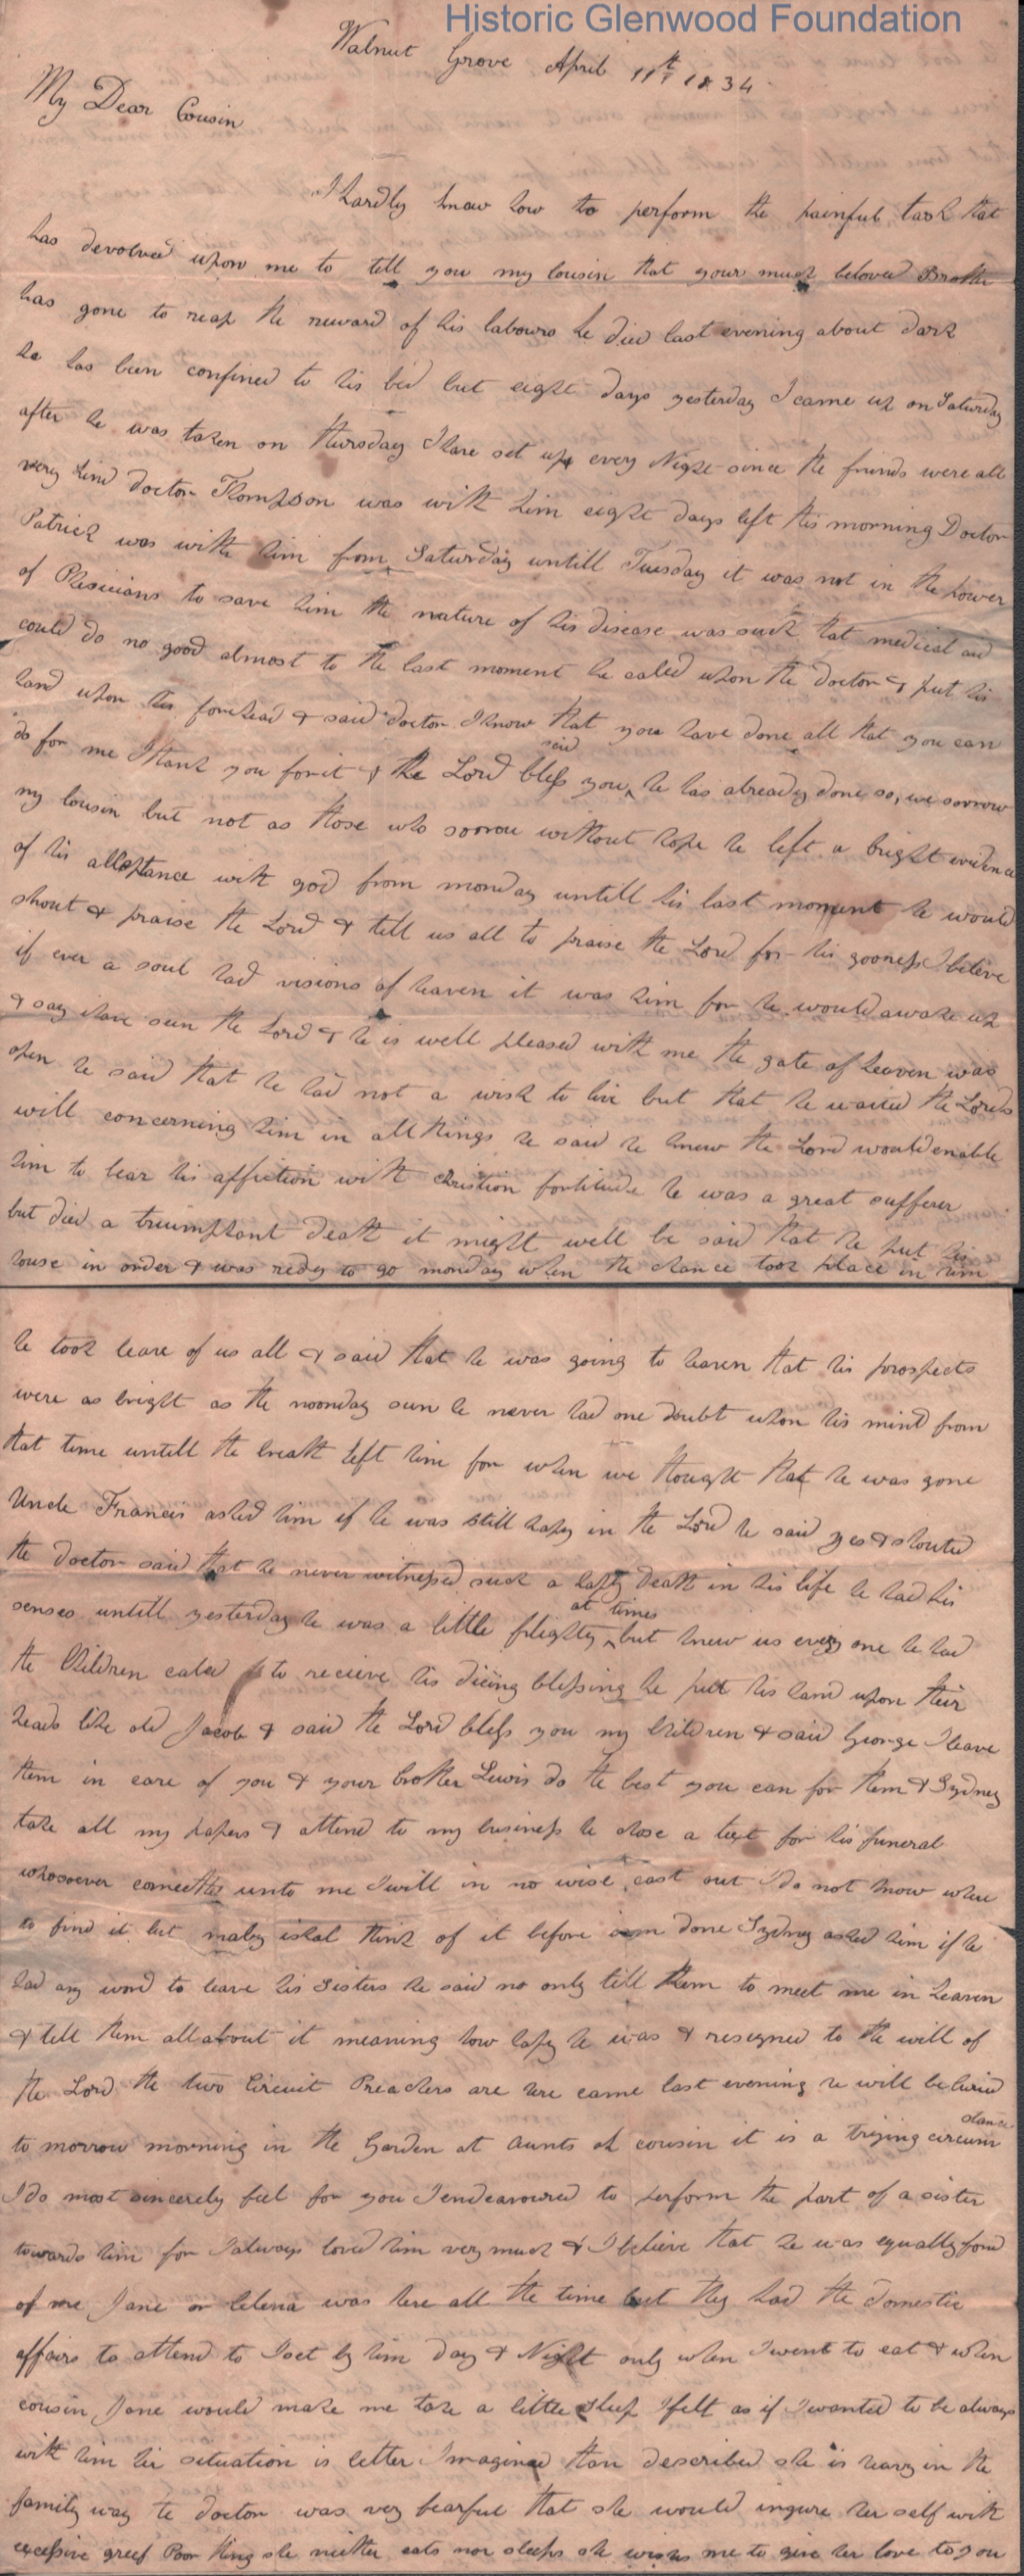 Historic Glenwood Foundation
Walnut Grove April 11th 1834
My Dear Cousin
I hardly know how to perform the painful task that
has devolved upon me to tell you my Cousin that your much beloved Brother
has gone to reap the reward of his labours he died last evening about dark
he has been confined to his bed but eight days yesterday I came up on Saturday
after he was taken on thursday I have set up every Night since the friends were all
very kind doctor Thompson was with him eight days left this morning Doctor
Patrick was with him from Saturday untill Tuesday it was not in the power
of Phisicians to save him the nature of his disease was such that medical aid
could do no good almost to the last moment he caled upon the doctor & put his
hand upon his forehead & said doctor I know that you have done all that you can
do for me I thank you for it & the Lord bless you, said he has already done so, we sorrow
my Cousin but not as those who sorrow without hope he left a bright evidence
of his acceptance with god from monday untill his last moment he would
shout & praise the Lord & tell us all to praise the Lord for his gooness I believe
if ever a soul had visions of heaven it was him for he would awake up
& say ihave seen the Lord & he is well pleased with me the gate of heaven was
open he said that he had not a wish to live but that he waited the Lords
will concerning him in all things he said he knew the Lord would enable
him to bear his affliction with christion fortitude he was a great sufferer
but died a triumphant death it might well be said that he put his
house in order & was redy to go monday when the chance took place in him
he took leave of us all & said that he was going to heaven that his prospects
were as bright as the noonday sun he never had one doubt upon his mind from
that time untill the breath left him for when we thought that he was gone
Uncle Francis asked him if he was still hapy in the Lord he said yes & shouted
the doctor said that he never witnessed such a hapy death in his life he had his
senses untill yesterday he was a little flighty at times but knew us every one he had
the Children caled to recieve his diëing blessing he put his hand upon their
heads like old Jacob & said the Lord bless you my Children & said George I leave
them in care of you & your brother Lewis do the best you can for them & Sydney
take all my papers & attend to my business he chose a text for his funeral
whosoever comeeth unto me I will in no wise cast out I do not know where
to find it but maby ishal think of it before iam done Sydney asked him if he
had any word to leave his sisters he said no only till them to meet me in heaven
& tell them all about it meaning how hapy he was & resigned to the will of
the Lord the two Circuit Preachers are here came last evening he will be buried
to morrow morning in the Garden at aunts oh cousin it is a trying circumstance
I do most sincerely feel for you I endeavoured to perform the part of a sister
towards him for I always loved him very much & I believe that he was equally fond
of me Jane or Celena was here all the time but they had the domestic
affairs to attend to I set by him day & Night only when I went to eat & when
cousin Jane would make me take a little sleep I felt as if I wanted to be always
with him her situation is better Imagined than described she is heavy in the
family way te doctor was very fearful that she would ingure her self with
excessive greef Poor thing she neither eats nor sleeps she wishes me to give her love to you